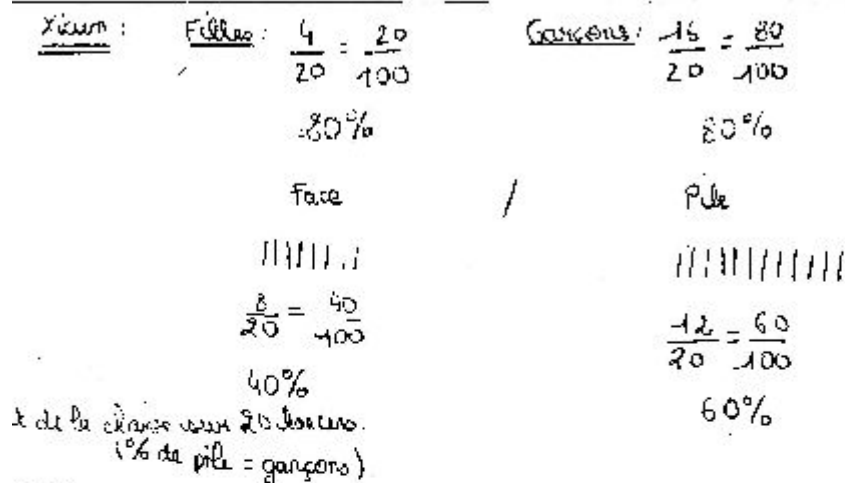 Xicun : Filles : 4/20 = 20/100 Garçons : 16/20 = 80/100
80% 80%
Face / Pile
8/20 = 40/100 12/20 = 60/100
40% 60%
de la classe sur 20 lancers.
(% de pile = garçons)